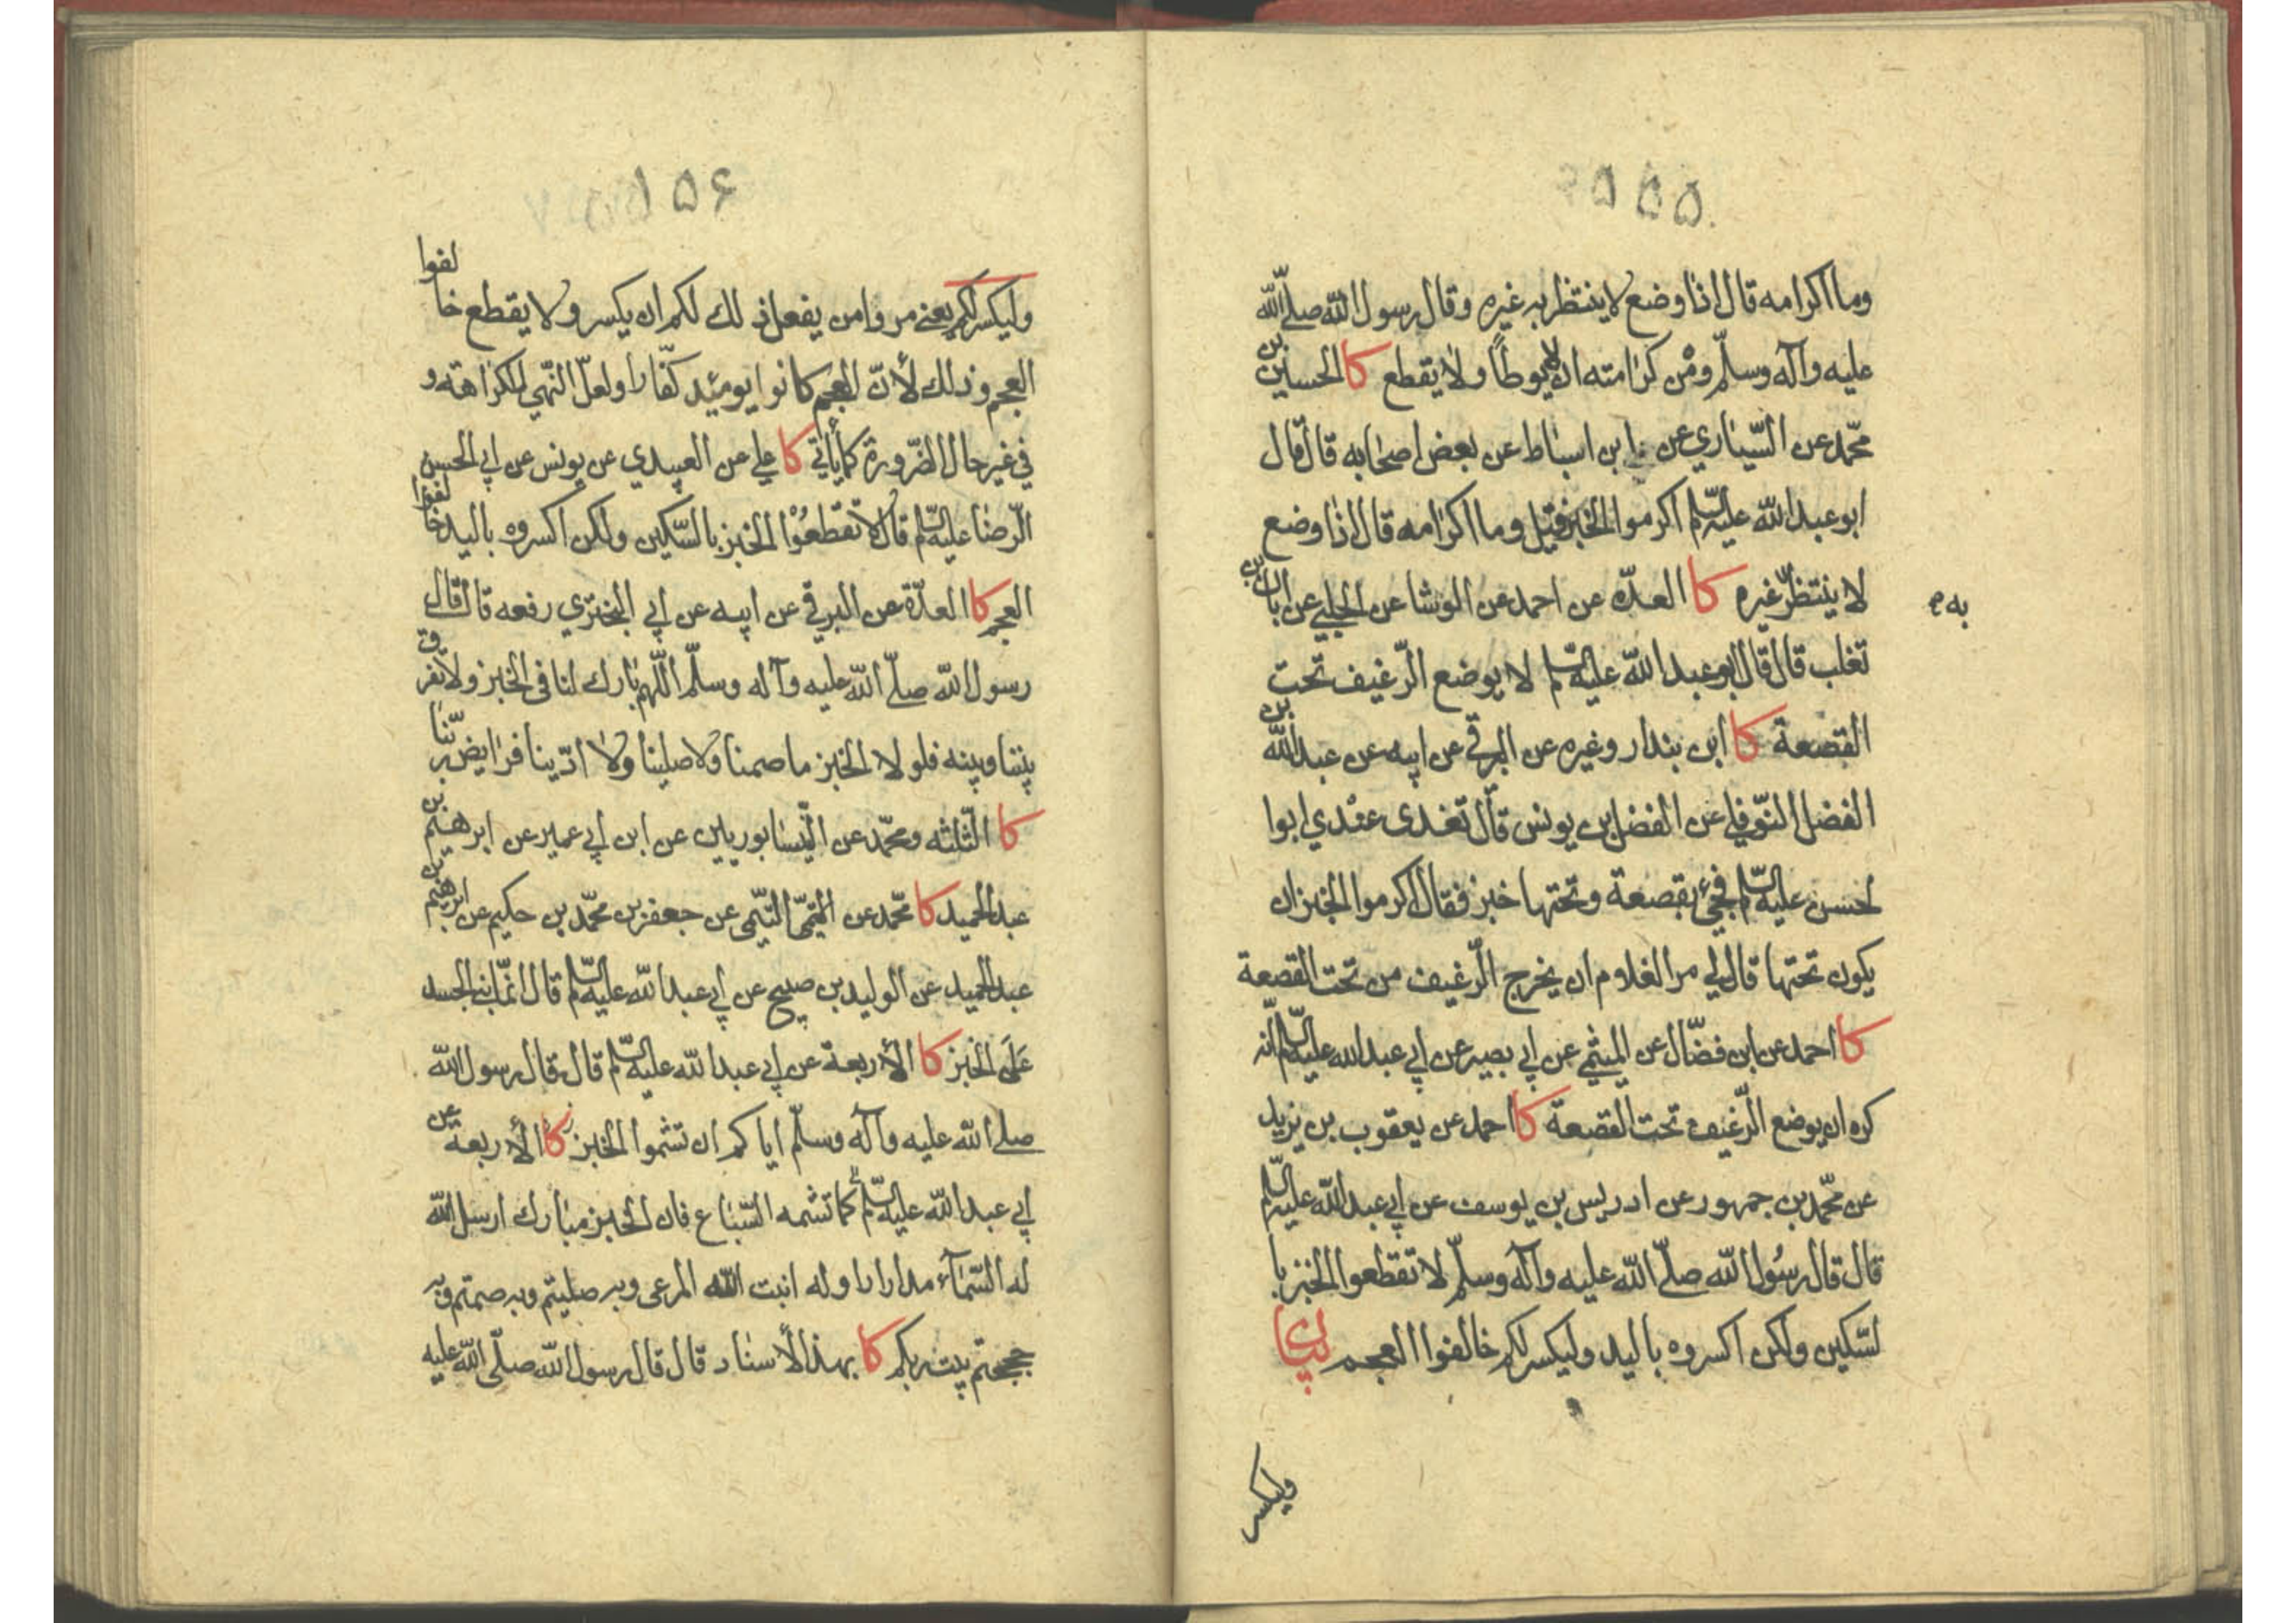 ۵۵۵
وما اكرامه قال اذا وضع لا ينتظر به غيره وقال رسول الله صلى الله
عليه وآله وسلّم ومن كرامته ان لا يوطأ ولا يقطع كا الحسين بن
محمّد عن السّياري عن ابن اسباط عن بعض اصحابه قال قال
ابو عبد الله عليه السّلم اكرموا الخبز فقيل وما اكرامه قال اذا وضع
لا ينتظر غيره كا العدّة عن احمد عن الوشا عن الحلبي عن ابان بن
به
تغلب قال قال ابو عبد الله عليه السّلم لا يوضع الرّغيف تحت
القصعة كا ابن بندار وغيره عن البرقي عن ابيه عن عبد الله بن
الفضل النّوفلي عن الفضل بن يونس قال تغدى عندي ابوا
لحسن عليه السّلم فجيء بقصعة وتحتها خبز فقال اكرموا الخبز ان
يكون تحتها قال لي مر الغلام ان يخرج الرّغيف من تحت القصعة
كا احمد عن ابن فضّال عن الميثمي عن ابي بصير عن ابي عبد الله عليه السّلم انّه
كره ان يوضع الرّغيف تحت القصعة كا احمد عن يعقوب بن يزيد
عن محمّد بن جمهور عن ادريس بن يوسف عن ابي عبد الله عليه السّلم
قال قال رسُول الله صلّى الله عليه وآله وسلّم لا تقطعوا الخبز با
لسّكين ولكن اكسروه باليد وليكسر لكم خالفوا العجم بيان
وليكسر
۵۵۶
وليكسر لكم يعني مروا من يفعل ذلك لكم ان يكسر ولا يقطع خالفوا
العجم وذلك لأنّ العجم كانوا يومئذ كفّارا ولعلّ النّهي للكراهة و
في غير حال الضّرورة كما يأتي كا علي عن العبيدي عن يونس عن ابي الحسن
الرّضا عليه السّلم قال لا تقطعُوْا الخبز بالسّكين ولكن اكسروه باليد خالفوا
العجم كا العدّة عن البرقي عن ابيه عن ابي البختري رفعه قال قال
رسول الله صلّى الله عليه وآله وسلّم اللّهم بارك لنا فى الخبز ولا تفرق
بيننا وبينه فلو لا الخبز ما صمنا ولا صلينا ولا ادّينا فرايض ربّنا
كا الثّلثه ومحمّد عن النّيسابوريين عن ابن ابي عمير عن ابرهيم بن
عبد الحميد كا محمّد عن التّيمي عن جعفر بن محمّد بن حكيم عن ابرهيم بن
عبد الحميد عن الوليد بن صبيح عن ابي عبد الله عليه السّلم قال انّما بني الجسد
عَلَى الخبز كا الأربعة عن ابي عبد الله عليه السّلم قال قال رسول الله
صلى الله عليه وآله وسلّم اياكم ان تشموا الخبز كا الأربعة عن
ابي عبد الله عليه السّلم كما تشمه السّباع فان الخبز مبارك ارسل الله
له السّمآء مدرارا وله انبت الله المرعى وبه صليتم وبه صمتم وبه
حججتم بيت ربكم كا بهذا الأسناد قال قال رسول الله صلّى الله عليه